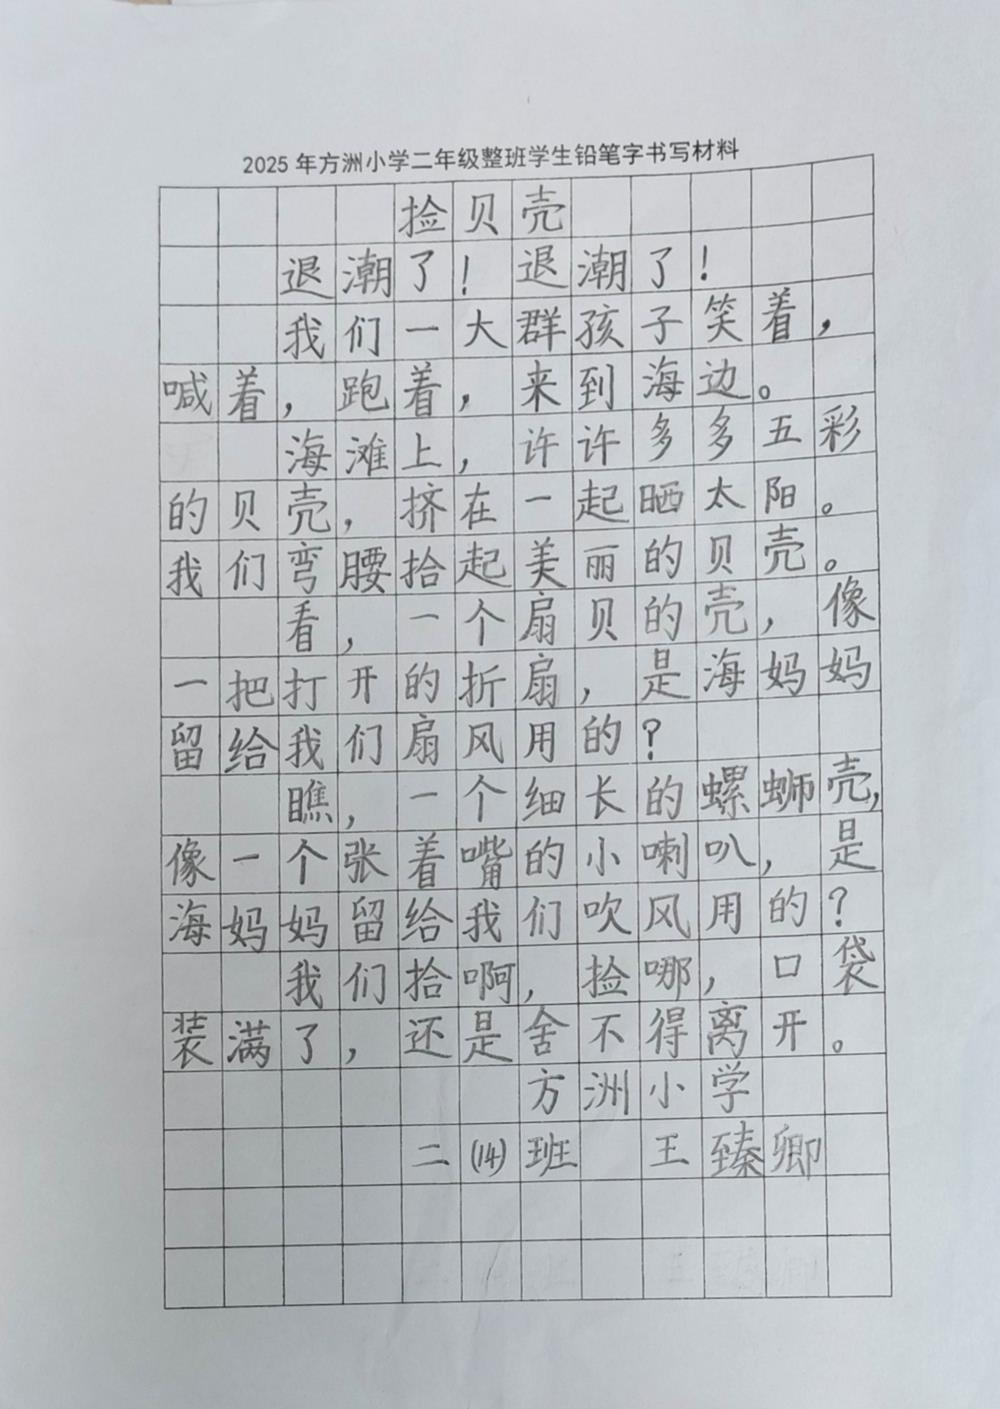 2025年方洲小学二年级整班学生铅笔字书写材料
捡贝壳
退潮了！退潮了！
我们一大群孩子笑着，
喊着，跑着，来到海边。
海滩上，许许多多五彩
的贝壳，挤在一起晒太阳。
我们弯腰拾起美丽的贝壳。
看，一个扇贝的壳，像
一把打开的折扇，是海妈妈
留给我们扇风用的？
瞧，一个细长的螺蛳壳，
像一个张着嘴的小喇叭，是
海妈妈留给我们吹风用的？
我们拾啊，捡哪，口袋
装满了，还是舍不得离开。
方洲小学
二(14)班 王臻卿